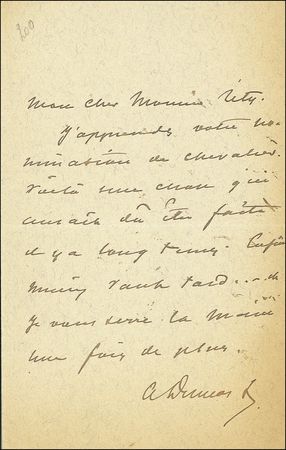 200
Mon cher Monsieur Réty.
J'apprends votre no-
mination de chevalier.
Voilà une chose qui
aurait dû être faite
il y a long temps. Enfin
mieux vaut tard....
Je vous serre la main
une fois de plus.
A Dumas f.